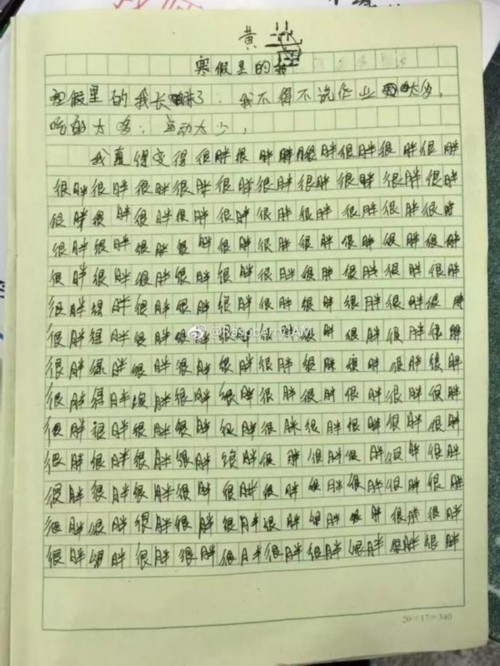 黄
寒假里的我
寒假里的我长胖了，我不得不说作业太多，
吃的太多，运动太少，
我真得变得很胖很胖很胖很胖很胖很胖很胖
很胖很胖很胖很胖很胖很胖很胖很胖很胖很胖
很胖很胖很胖很胖很胖很胖很胖很胖很胖很胖
很胖很胖很胖很胖很胖很胖很胖很胖很胖很胖
很胖很胖很胖很胖很胖很胖很胖很胖很胖很胖
很胖很胖很胖很胖很胖很胖很胖很胖很胖很胖
很胖很胖很胖很胖很胖很胖很胖很胖很胖很胖
很胖很胖很胖很胖很胖很胖很胖很胖很胖很胖
很胖很胖很胖很胖很胖很胖很胖很胖很胖很胖
很胖很胖很胖很胖很胖很胖很胖很胖很胖很胖
很胖很胖很胖很胖很胖很胖很胖很胖很胖很胖
很胖很胖很胖很胖很胖很胖很胖很胖很胖很胖
很胖很胖很胖很胖很胖很胖很胖很胖很胖很胖
很胖很胖很胖很胖很胖很胖很胖很胖很胖很胖
20×17=340